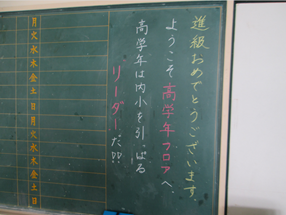 進級おめでとうございます
ようこそ高学年フロアへ、
高学年は内小を引っぱる
リーダーだ!!
月
火
水
木
金
土
日
月
火
水
木
金
土
日